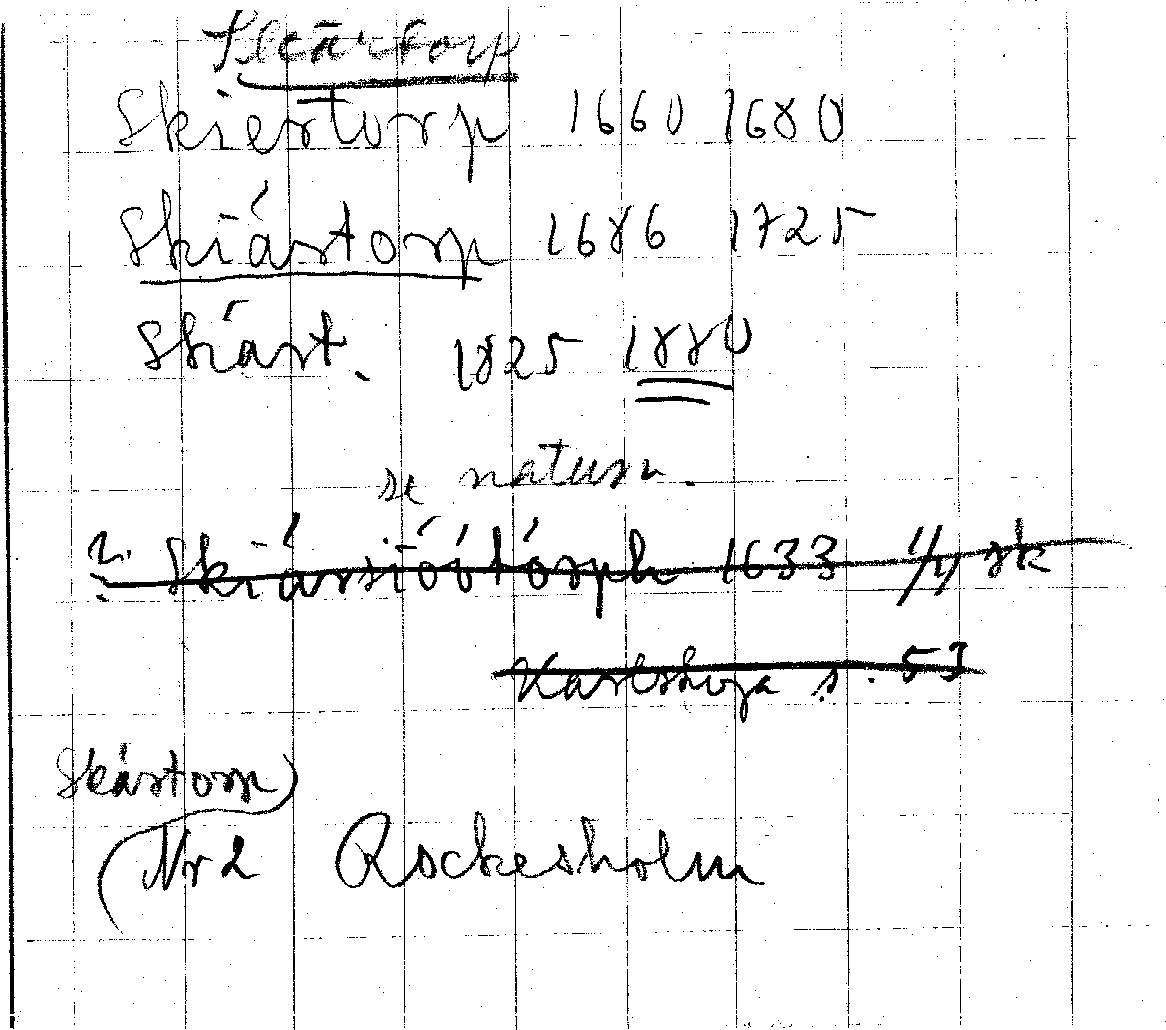 Skärtorp
Skiertorp 1660 1680
Skiártorp 1686 1725
Skiárt. 1825 1880
se naturn.
?. Skiársióótórph 1633 1/4 sk
Karlskoga s. 53
Skártorp
Nr 2 Rockesholm